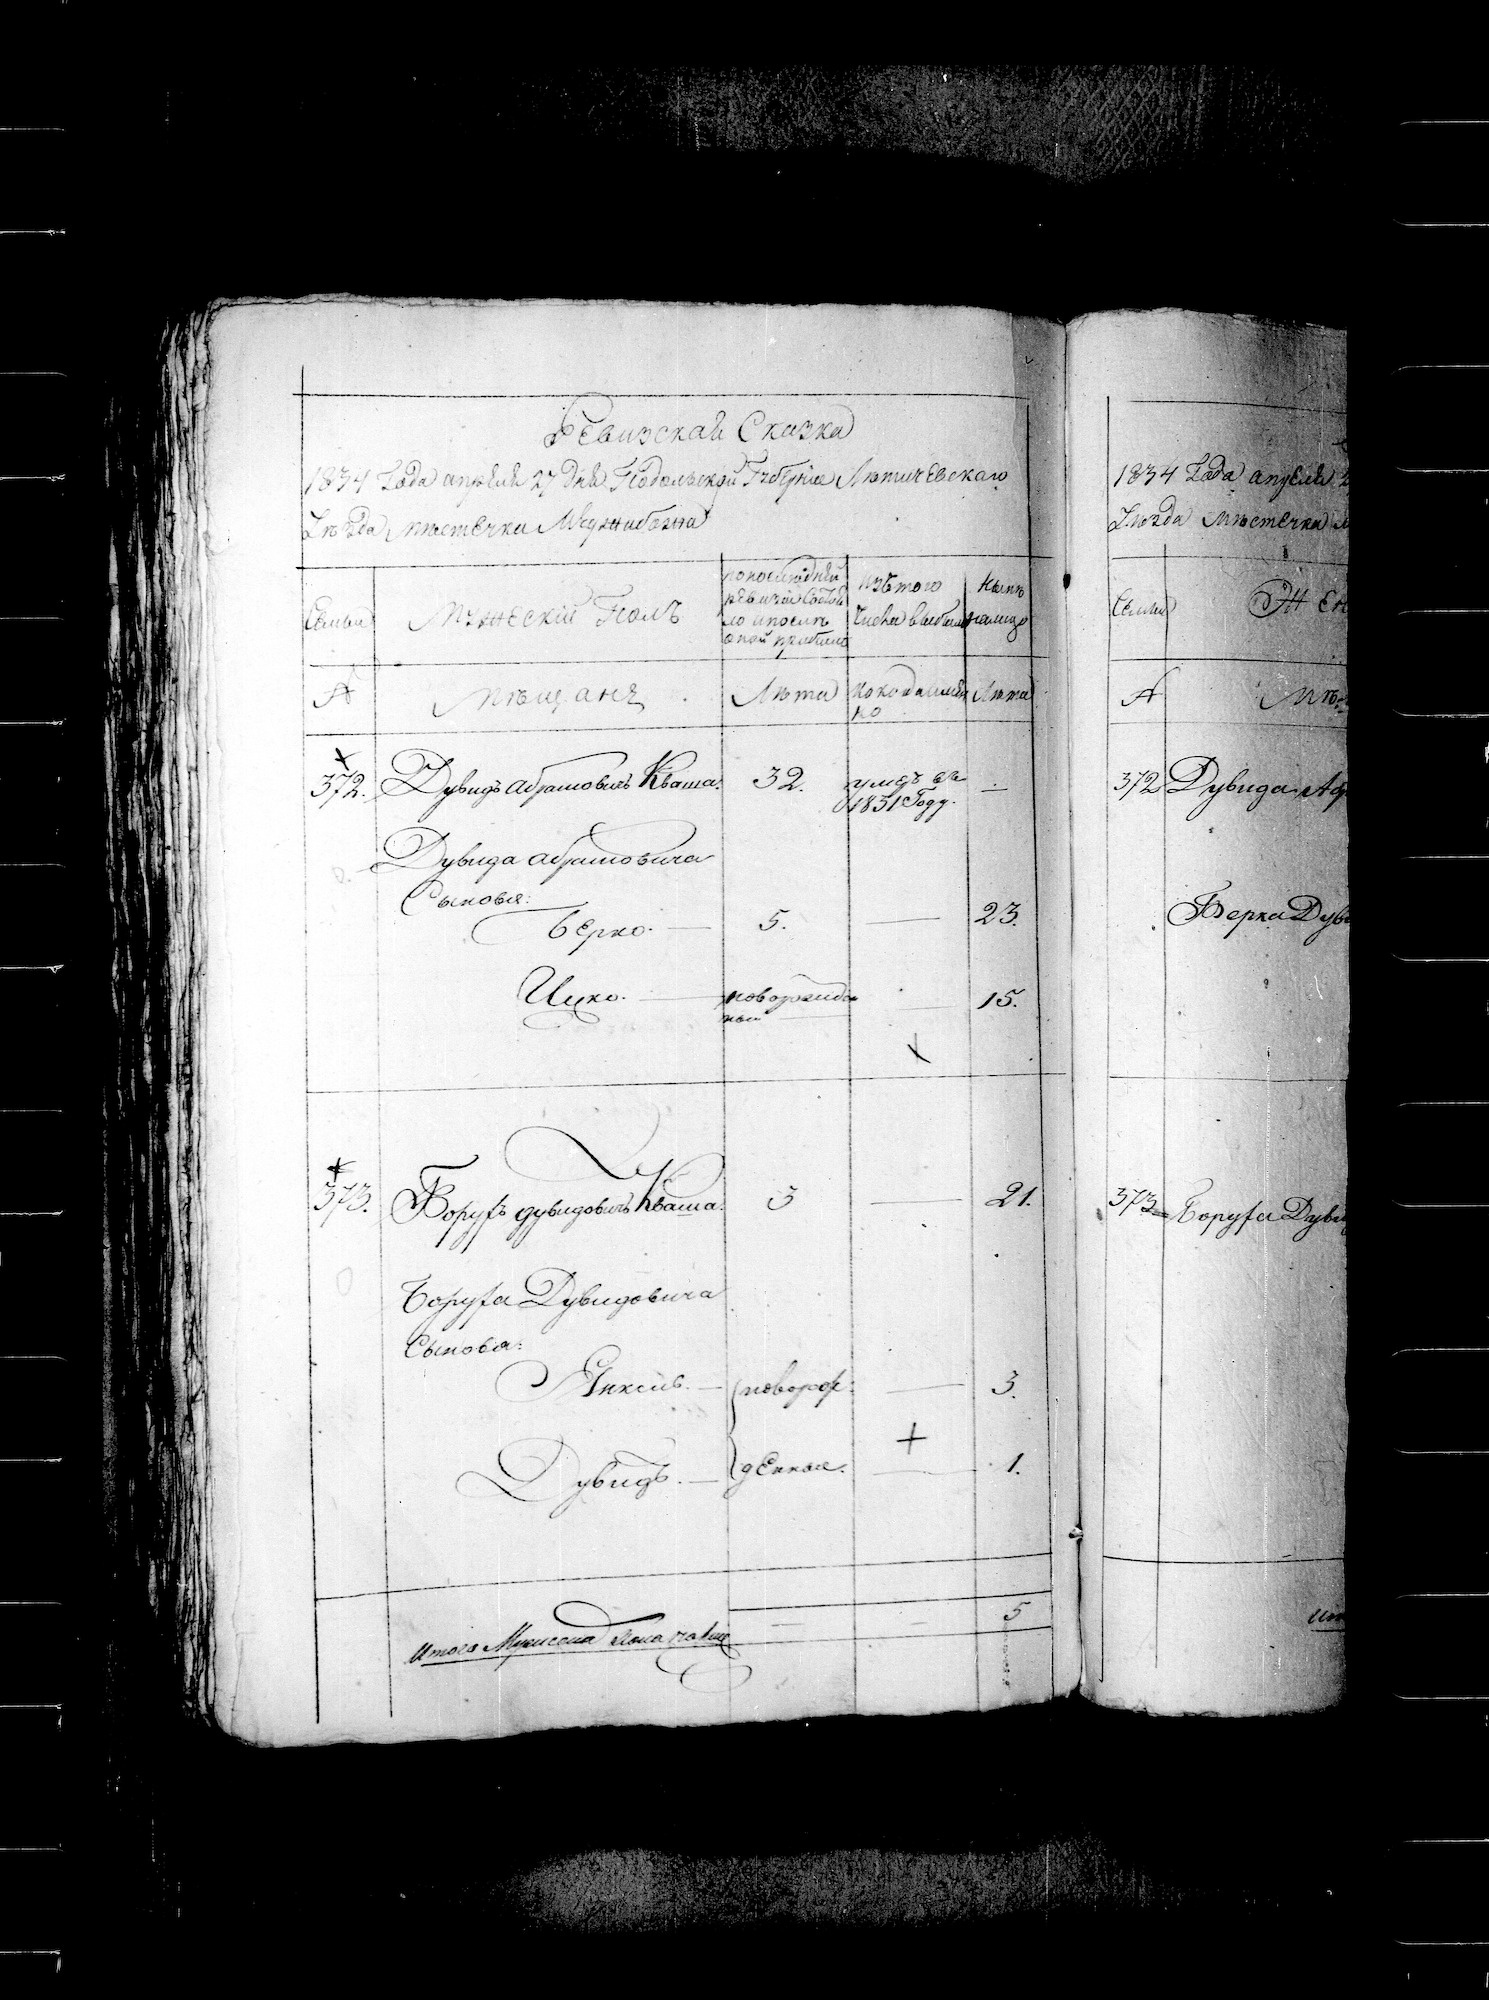 Ревизская Сказка
1834 Года апреля 27 дня Подольской Губернии Летичевскаго
Уезда местечка Меджибожа
Семьи
Мужеский Полъ
по последней
ревизии состоя
ло и после
оной прибыло
Изъ того
числа выбыло
Ныне
налицо
А
Мещане
Лета
когда именно
Лета
372.
Дувидъ Абрамовичъ Кваша.
32.
умеръ въ
1831 Году.
Дувида Абрамовича
Сыновья:
Берко.
5.
23.
Ицко.
новорожден
ный
15.
373.
Борухъ Дувидовичъ Кваша.
3
21.
Боруха Дувидовича
Сыновья:
Янкель.
новорож:
3.
Дувидъ.
денныя.
1.
Итого Мужеска Пола налицо
5
1834 Года апреля
Уезда местечка
Семьи
Жен
А
Ме
372
Дувида А
Берка Дув
373
Боруха Дув